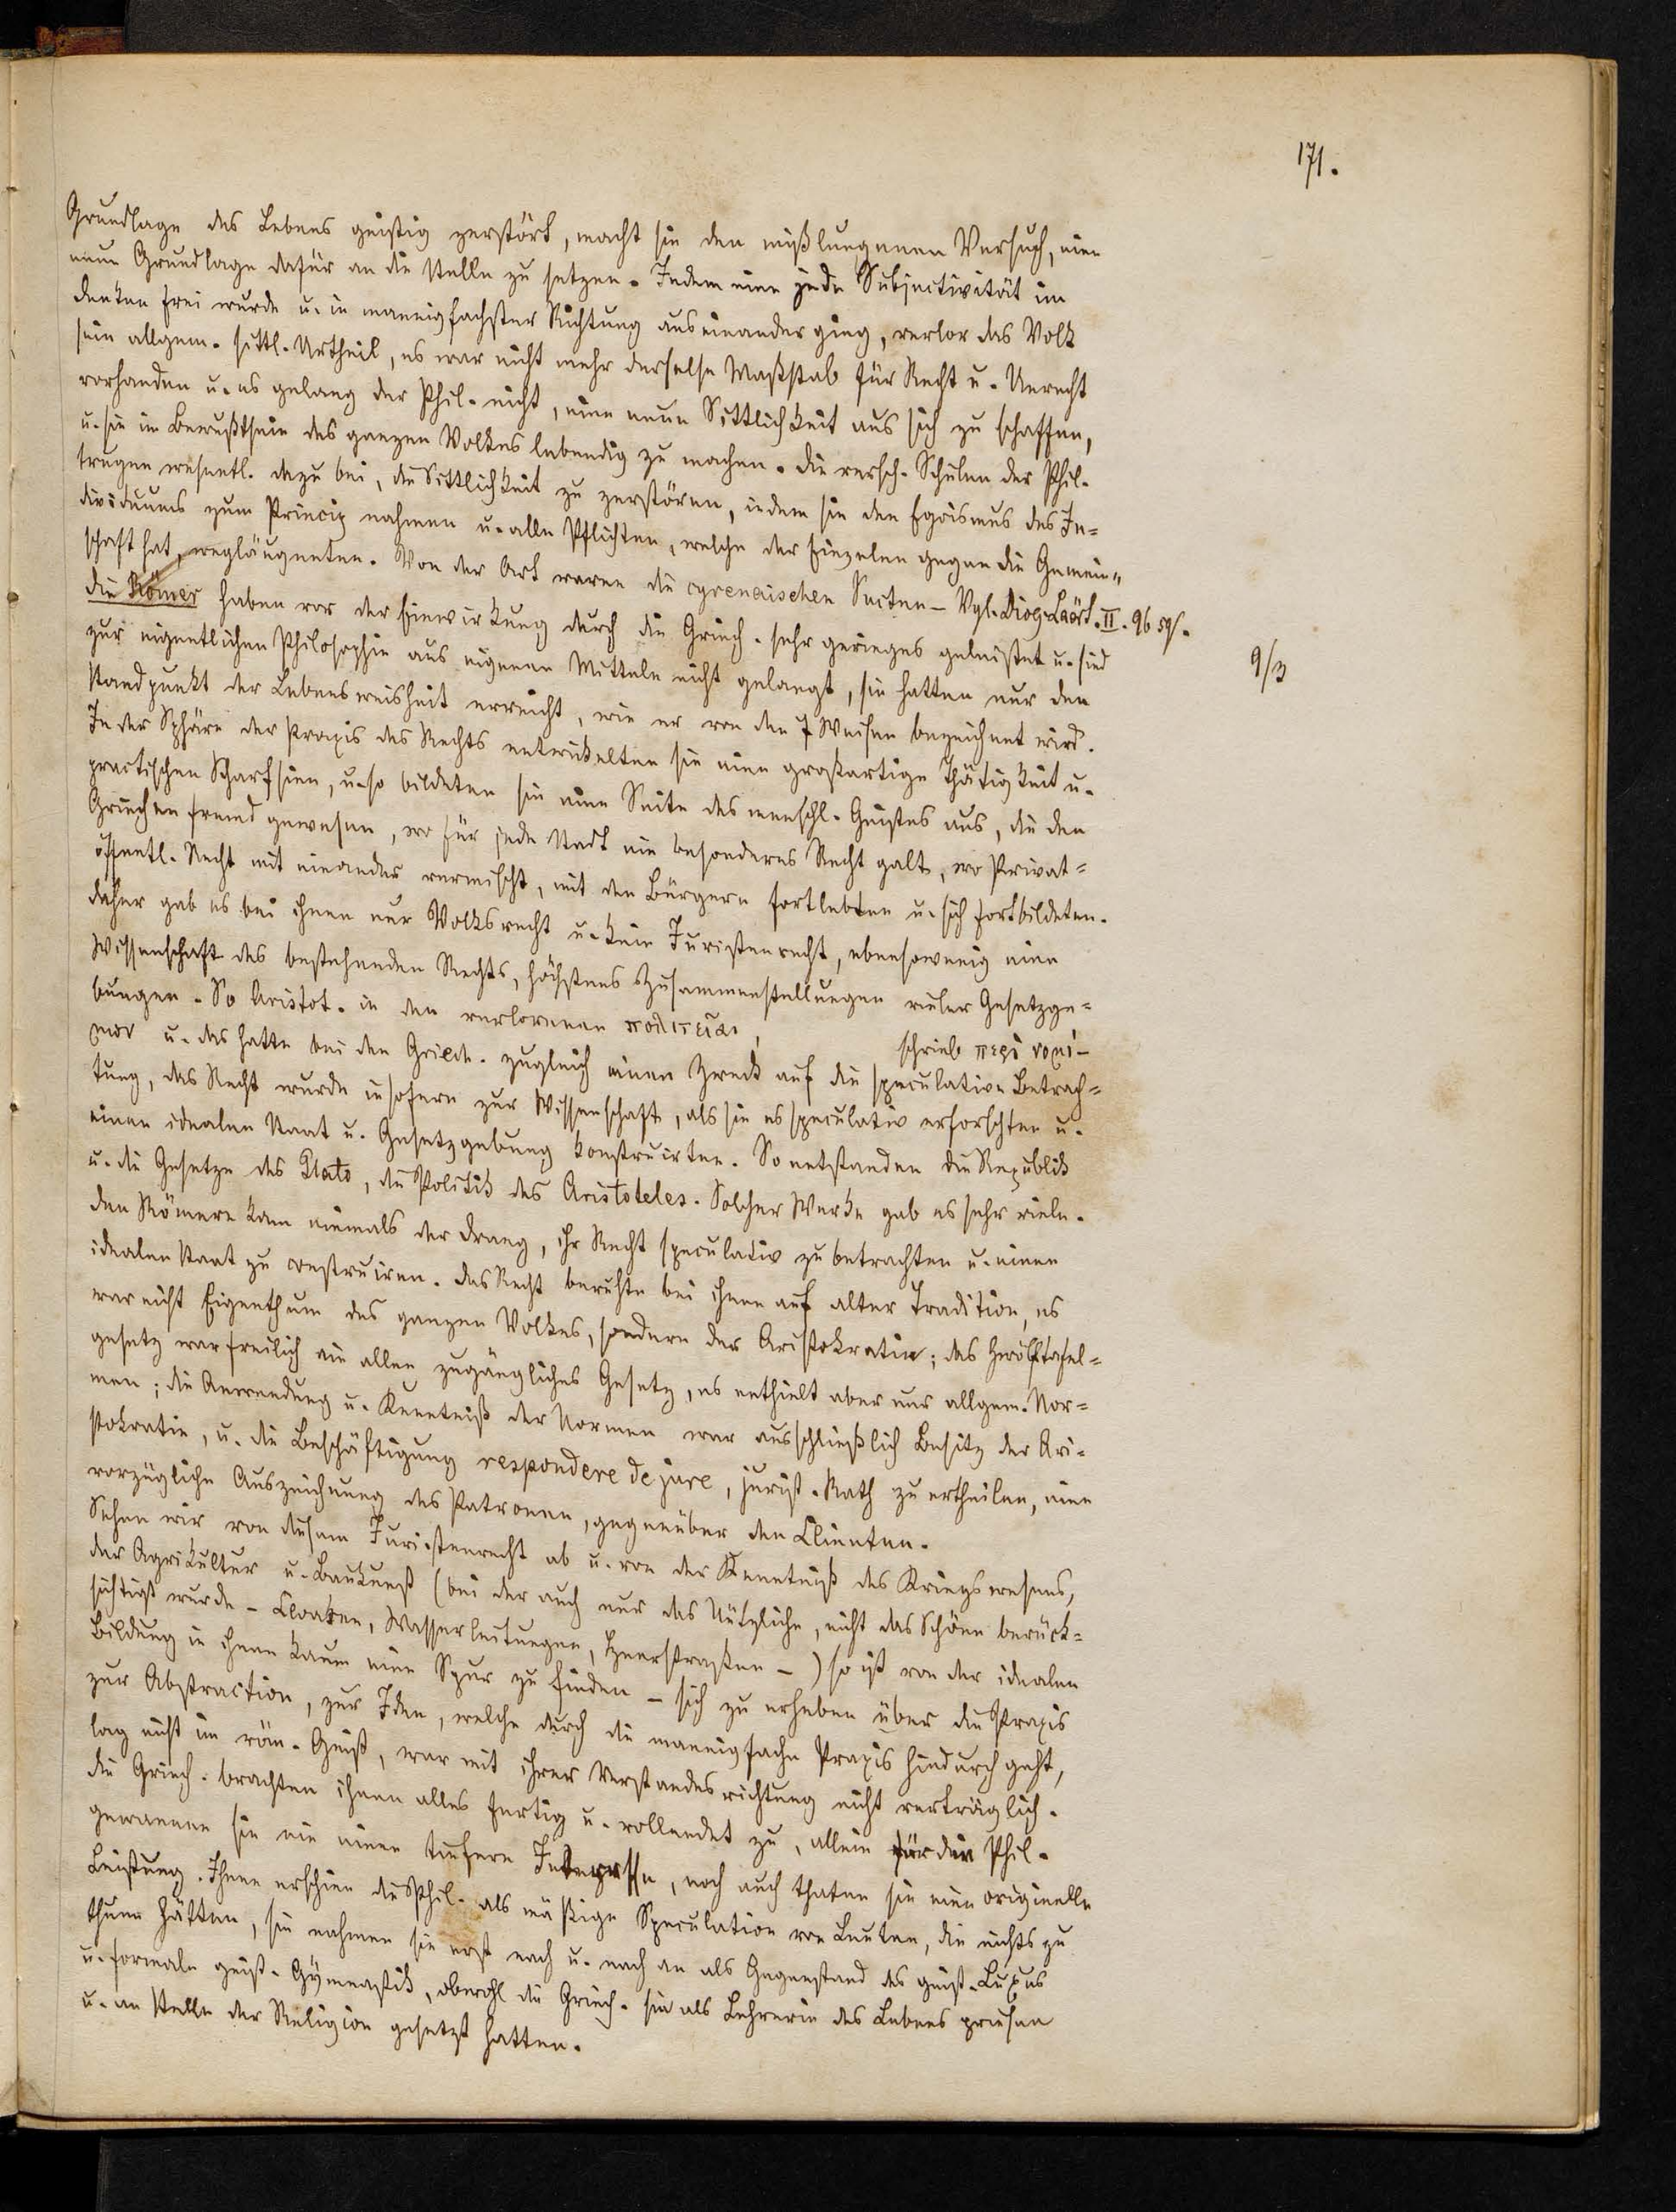 171.
Grundlage des Lebens geistig zerstört, macht sie den mißlungenen Versuch, eine
neue Grundlage dafür an die Stelle zu setzen. Indem eine jede Subjectivität im
Denken frei wurde u. in mannigfachster Richtung auseinander ging, verlor das Volk
sein allgem. sittl. Urtheil, es war nicht mehr derselbe Maßstab für Recht u. Unrecht
vorhanden u. es gelang der Phil. nicht, eine neue Sittlichkeit aus sich zu schaffen,
u. sie im Bewußtsein des ganzen Volkes lebendig zu machen. Die versch. Schulen der Phil.
trugen wesentl. dazu bei, die Sittlichkeit zu zerstören, indem sie den Egoismus des In=
dividuums zum Princip nahmen u. alle Pflichten, welche der Einzelne gegen die Gemein=
schaft hat, wegläugneten. Von der Art waren die cyrenaischen Secten – Vgl. Diog. Laërt. II. 96 sq.
Die Römer haben vor der Einwirkung durch die Griech. sehr geringes geleistet u. sind
9/3
zur eigentlichen Philosophie aus eigenen Mitteln nicht gelangt, sie hatten nur den
Standpunkt der Lebensweisheit erreicht, wie er von den 7 Weisen bezeichnet wird.
In der Sphäre der Praxis des Rechts entwickelten sie eine großartige Thätigkeit u.
practischen Scharfsinn, u. so bildeten sie eine Seite des menschl. Geistes aus, die den
Griechen fremd gewesen, wo für jede Stadt ein besonderes Recht galt, wo Privat=
öffentl. Recht mit einander vermischt, mit den Bürgern fortlebten u. sich fortbildeten.
Daher gab es bei ihnen nur Volksrecht u. kein Juristenrecht, ebensowenig eine
Wissenschaft des bestehenden Rechts, höchstens Zusammenstellungen vieler Gesetzge=
bungen. So Aristot. in den verlorenen πολιτεῖαι,
schrieb περὶ νομί–
μων u. das hatte bei den Griech. zugleich einen Zweck auf die speculative Betrach=
tung, das Recht wurde insofern zur Wissenschaft, als sie es speculativ erforschten u.
einen idealen Staat u. Gesetzgebung konstruirten. So entstanden die Republik
u. die Gesetze des Plato, die Politik des Aristoteles. Solcher Werke gab es sehr viele.
Den Römern kam niemals der Drang, ihr Recht speculativ zu betrachten u. einen
idealen Staat zu construiren. Das Recht beruhte bei ihnen auf alter Tradition, es
war nicht Eigenthum des ganzen Volkes, sondern der Aristokratie; das Zwölftafel=
gesetz war freilich ein allen zugängliches Gesetz, es enthielt aber nur allgem. Nor=
men; die Anwendung u. Kenntniß der Normen war ausschließlich Besitz der Ari=
stokratie, u. die Beschäftigung respondere de jure, jurist. Rath zu ertheilen, eine
vorzügliche Auszeichnung des Patronen, gegenüber den Clienten.
Sehen wir von diesem Juristenrecht ab u. von der Kenntniß des Kriegswesens,
der Agrikultur u. Baukunst (bei der auch nur das Nützliche, nicht das Schöne berück=
sichtigt wurde – Cloaken, Wasserleitungen, Heerstraßen –) so ist von der idealen
Bildung in ihnen kaum eine Spur zu finden – sich zu erheben über die Praxis
zur Abstraction, zur Idee, welche durch die mannigfache Praxis hindurch geht,
lag nicht im röm. Geist, war mit ihrer Verstandesrichtung nicht verträglich.
Die Griech. brachten ihnen alles fertig u. vollendet zu, allein für die Phil.
gewannen sie nie einen tiefern Interesse, noch auch thaten sie eine originelle
Leistung. Ihnen erschien die Phil. als müßige Speculation von Leuten, die nichts zu
thun hätten, sie nahmen sie erst nach u. nach an als Gegenstand des geist. Luxus
u. formale geist. Gymnastik, obwohl die Griech. sie als Lehrerin des Lebens priesen
u. an Stelle der Religion gesetzt hatten.